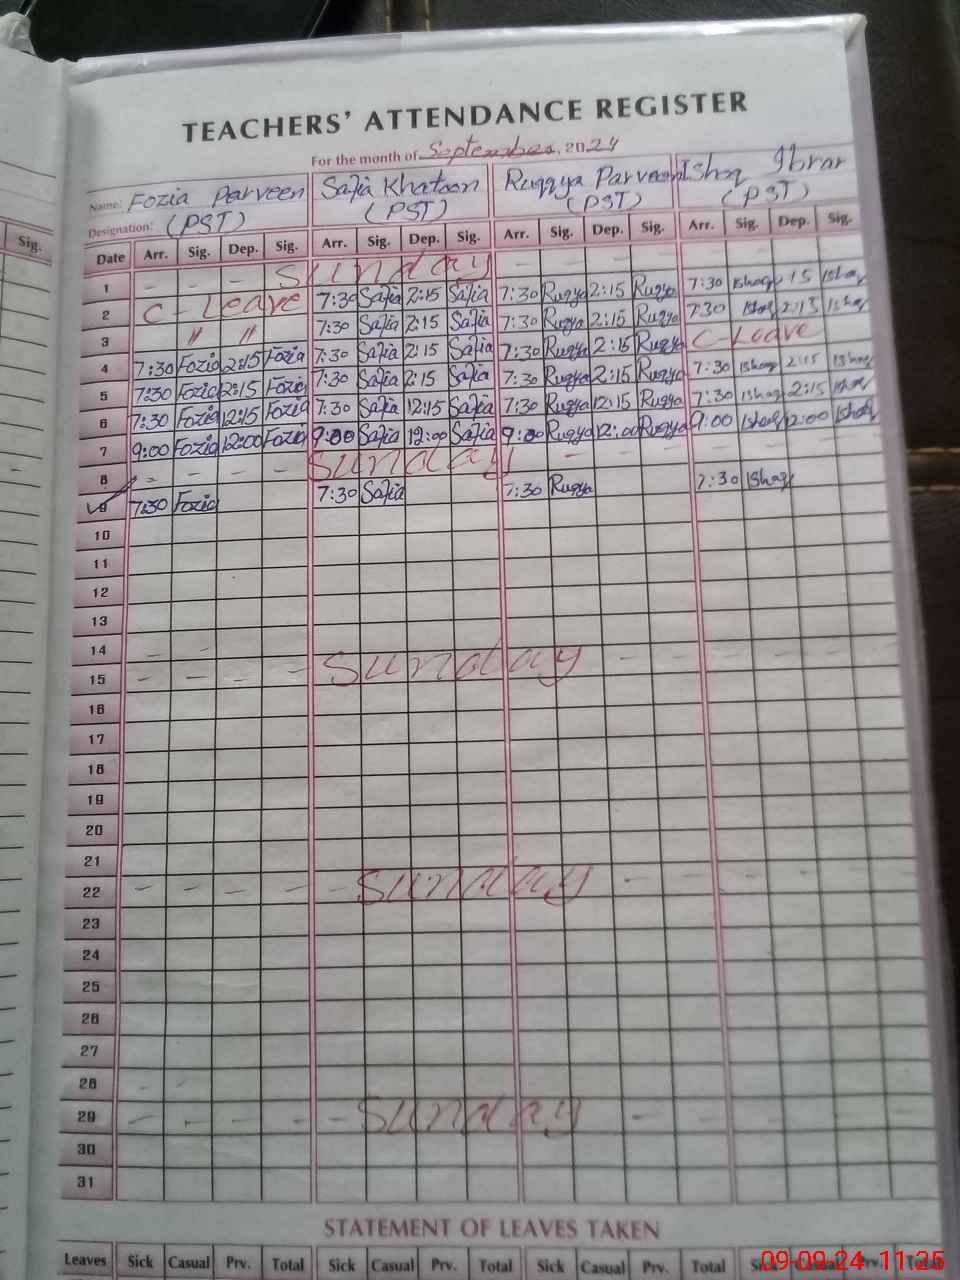 TEACHERS' ATTENDANCE REGISTER
For the month of September, 2024
Name: Fozia Parveen Safia Khatoon Ruqqya Parveen Ishaq Ibrar
Designation: (PST) (PST) (PST) (PST)
Sig.
Date Arr. Sig. Dep. Sig. Arr. Sig. Dep. Sig. Arr. Sig. Dep. Sig. Arr. Sig. Dep. Sig.
1 - - - Sunday - - - - - -
2 C-Leave 7:30 Safia 2:15 Safia 7:30 Ruqya 2:15 Ruqya 7:30 Ishaq 15 Ishaq
3 " " 7:30 Safia 2:15 Safia 7:30 Ruqya 2:15 Ruqya 7:30 Ishaq 2:15 Ishaq
4 7:30 Fozia 2:15 Fozia 7:30 Safia 2:15 Safia 7:30 Ruqya 2:15 Ruqya C-Leave
5 7:30 Fozia 2:15 Fozia 7:30 Safia 2:15 Safia 7:30 Ruqya 2:15 Ruqya 7:30 Ishaq 2:15 Ishaq
6 7:30 Fozia 12:15 Fozia 7:30 Safia 12:15 Safia 7:30 Ruqya 12:15 Ruqya 7:30 Ishaq 2:15 Ishaq
7 9:00 Fozia 12:00 Fozia 9:00 Safia 12:00 Safia 9:00 Ruqya 12:00 Ruqya 9:00 Ishaq 12:00 Ishaq
8 - - - - Sunday - - - - - -
9 7:30 Fozia 7:30 Safia 7:30 Ruqya 7:30 Ishaq
10
11
12
13
14
15 - - - - Sunday - - - - - -
16
17
18
19
20
21
22 - - - - - Sunday - - - - - -
23
24
25
26
27
28
29 - - - - - Sunday - - - - -
30
31
STATEMENT OF LEAVES TAKEN
Leaves Sick Casual Prv. Total Sick Casual Prv. Total Sick Casual Prv. Total Sick Casual Prv. Total
09-09-24 11:25